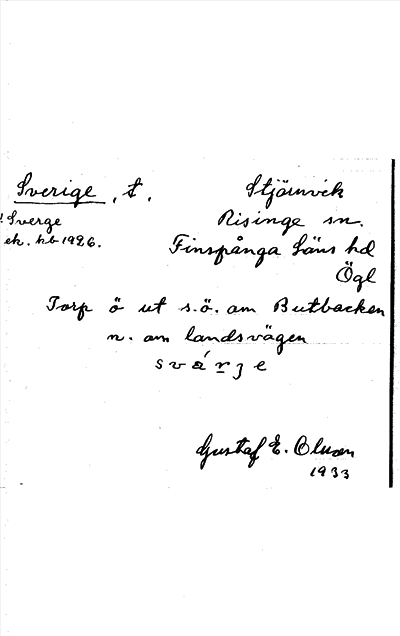 Sverige, t.
Stjärnvik
! Sverge
Risinge sn.
ek. kb 1926.
Finspånga Läns hd
Ögl
Torp ö ut s.ö. om Butbacken
n. om landsvägen
s v á r ȷ e
Gustaf E. Olsson
1933